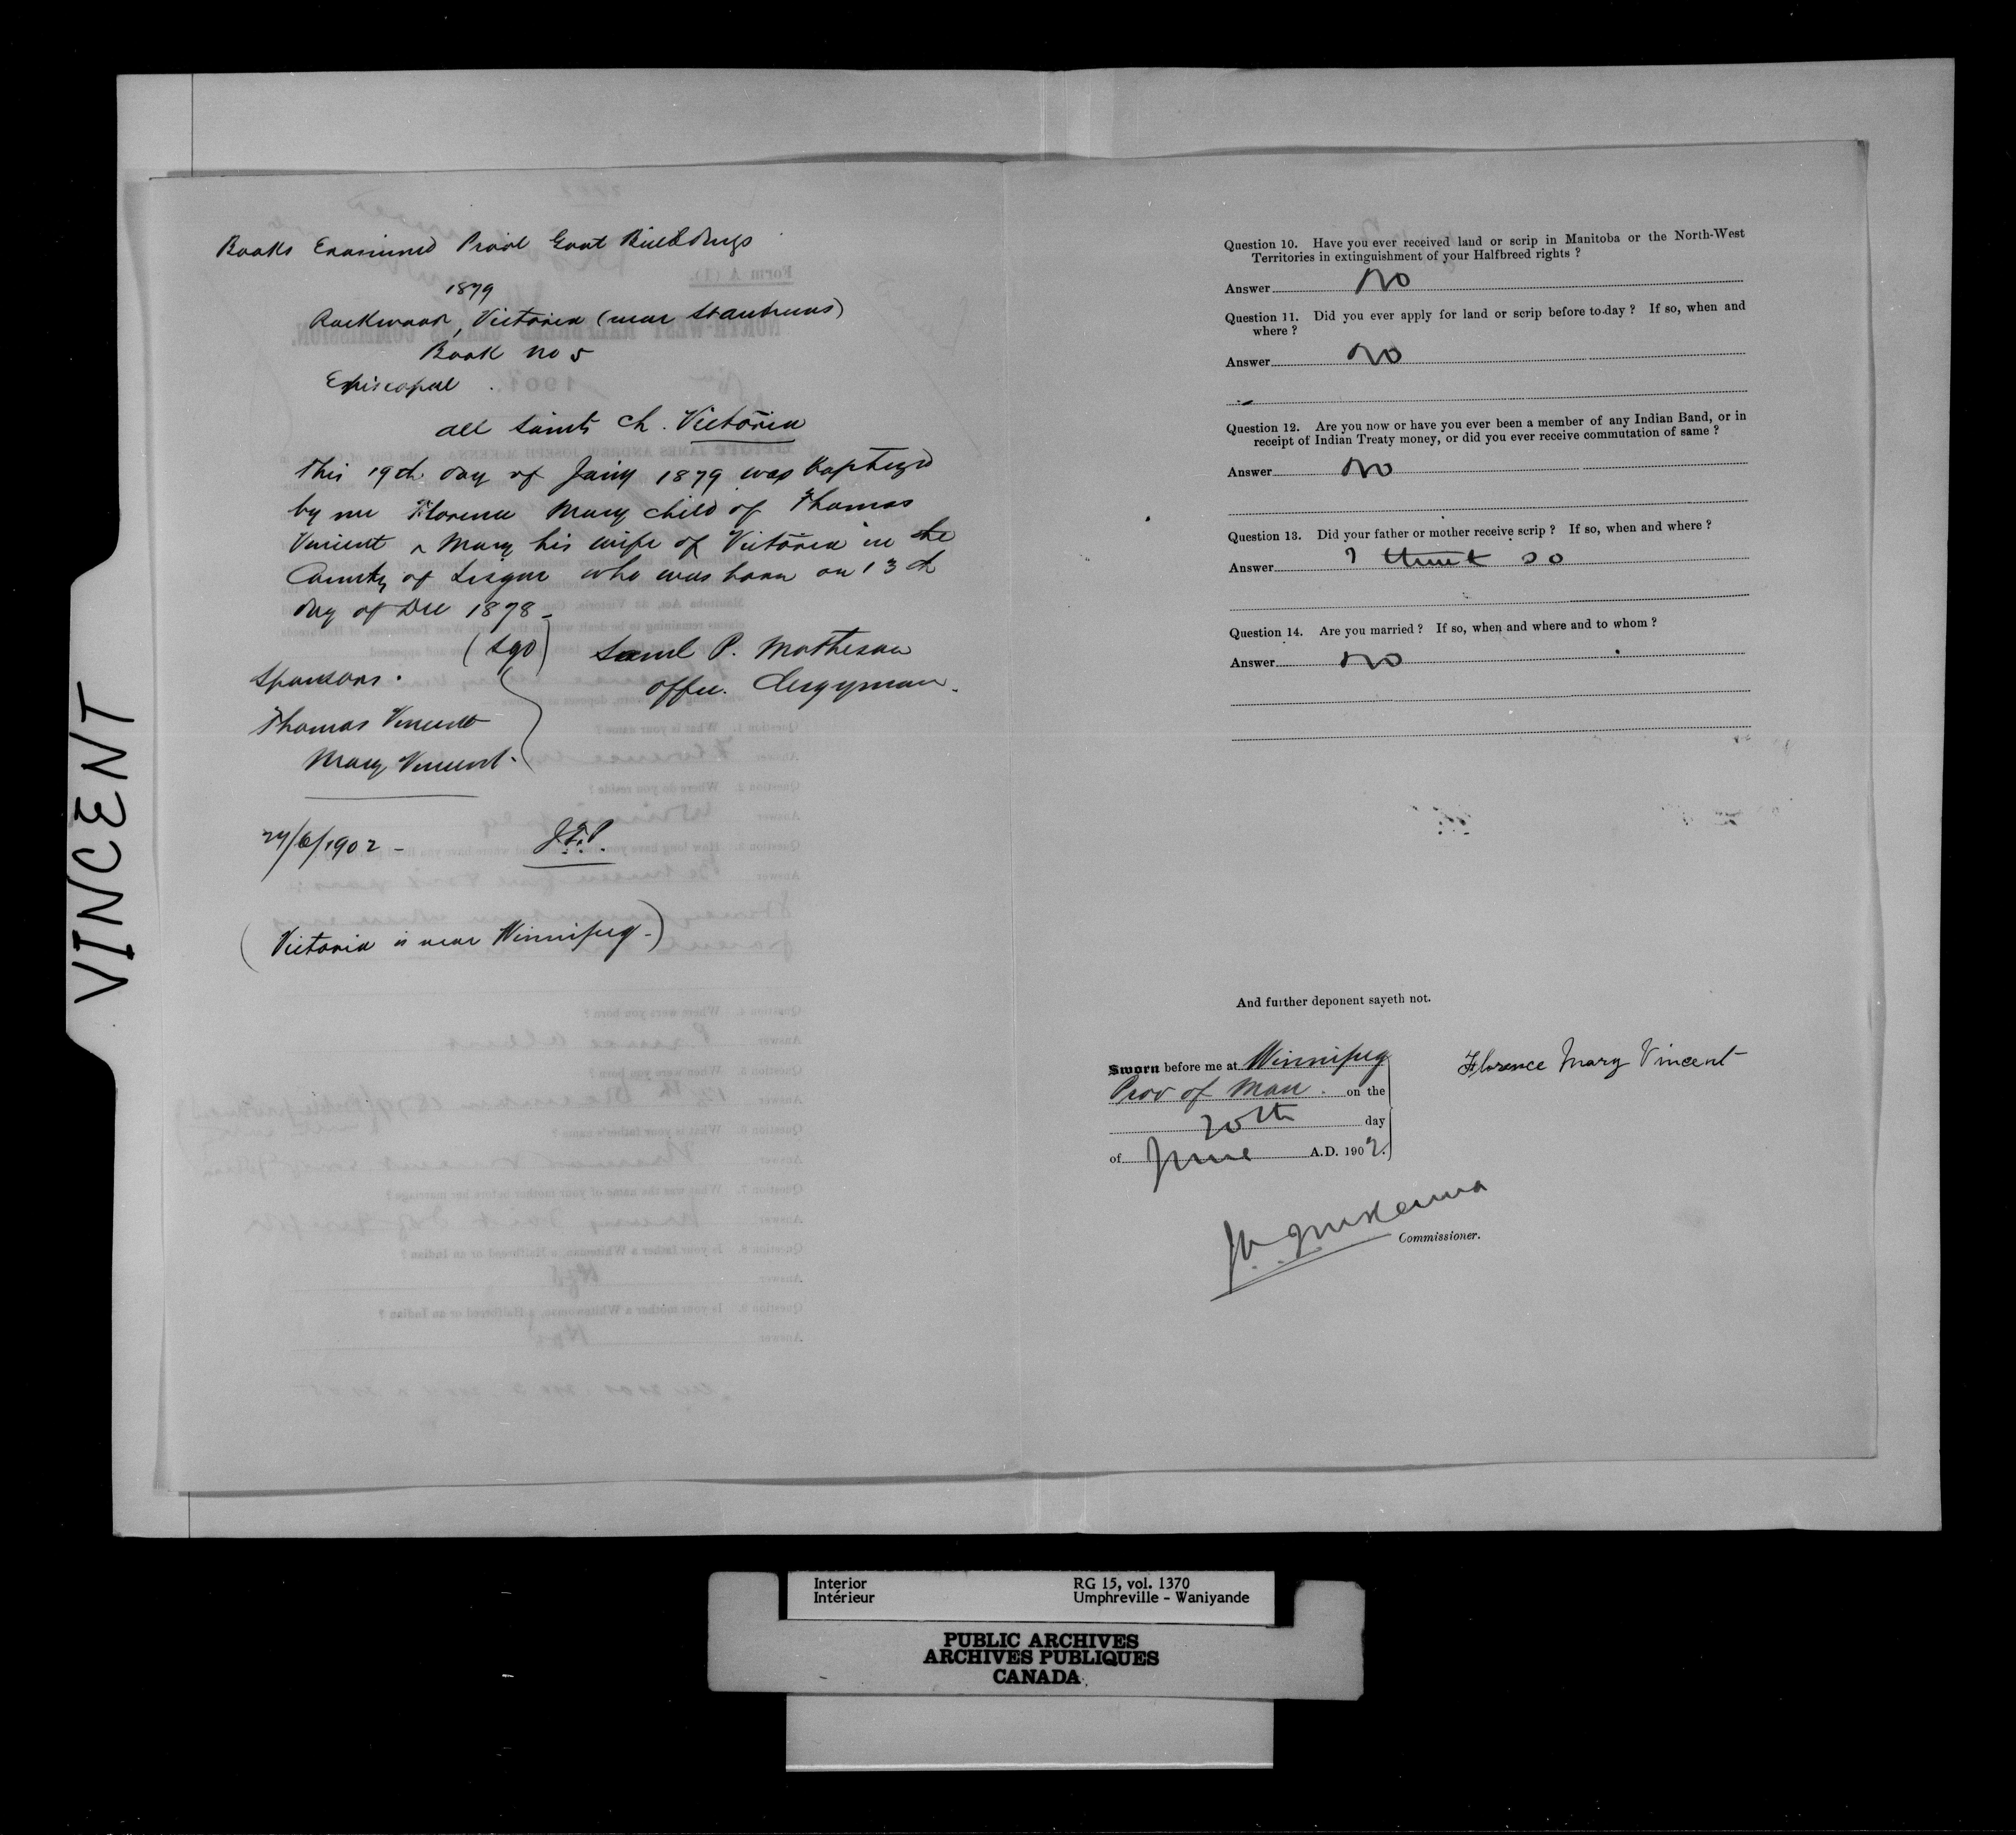 VINCENT
Books Examined Provl Govt Buildings
1879
Rockwood, Victoria (near St Andrews)
Book no 5
Episcopal
all Saints Ch. Victoria
This 19th day of Jany 1879 was baptized
by me Florence Mary child of Thomas
Vincent & Mary his wife of Victoria in the
County of Lisgar who was born on 13th
day of Dec 1878 -
(Sgd) Saml P. Matheson
Offic. Clergyman.
Sponsors.
Thomas Vincent
Mary Vincent.
24/6/1902 -
(Victoria is near Winnipeg -)
Question 10. Have you ever received land or scrip in Manitoba or the North-West
Territories in extinguishment of your Halfbreed rights ?
Answer No
Question 11. Did you ever apply for land or scrip before to-day ? If so, when and
where ?
Answer No
Question 12. Are you now or have you ever been a member of any Indian Band, or in
receipt of Indian Treaty money, or did you ever receive commutation of same ?
Answer No
Question 13. Did your father or mother receive scrip ? If so, when and where ?
Answer I think so
Question 14. Are you married ? If so, when and where and to whom ?
Answer No
And further deponent sayeth not.
Sworn before me at Winnipeg
Prov of Man. on the
20th day
of June A.D. 1902.
Florence Mary Vincent
J A J McKenna
Commissioner.
Interior
Intérieur
RG 15, vol. 1370
Umphreville - Waniyande
PUBLIC ARCHIVES
ARCHIVES PUBLIQUES
CANADA